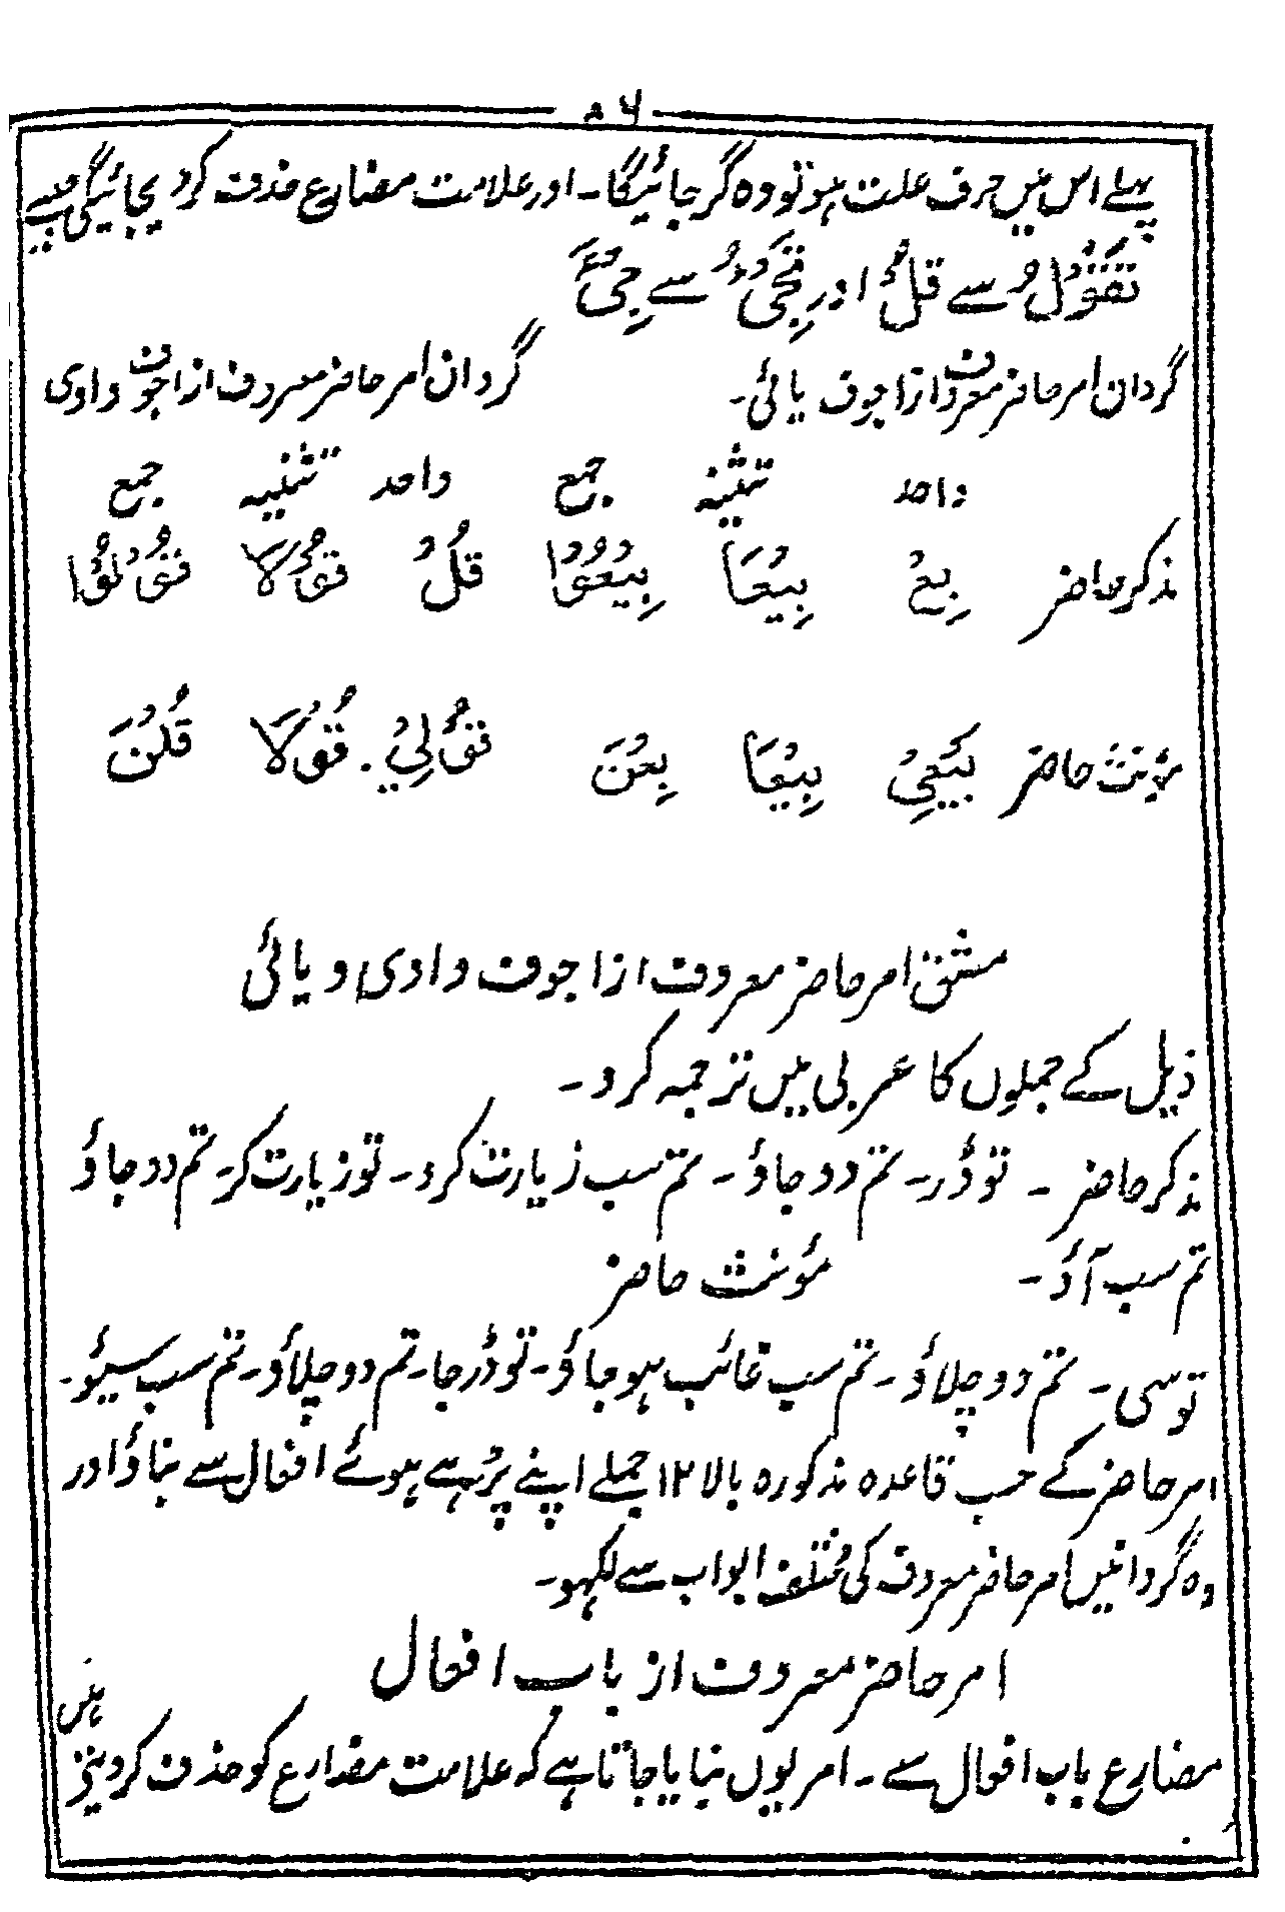 ۵۶
پہلے اس میں حرف علت ہو تو وہ گر جائیگا۔ اور علامت مضارع حذف کر دیجائیگی جیسے
تَقُوْلُ سے قُلْ اور تَجِیْءُ سے جِیْءَ
گردان امر حاضر معروف از اجوف یائی۔ گردان امر حاضر معروف از اجوف واوی
واحد تثنیہ جمع واحد تثنیہ جمع
مذکر حاضر بِعْ بِیْعَا بِیْعُوْا قُلْ قُوْلَا قُوْلُوْا
مؤنث حاضر بِیْعِیْ بِیْعَا بِعْنَ قُوْلِیْ . قُوْلَا قُلْنَ
مشق امر حاضر معروف از اجوف وادی و یائی
ذیل کے جملوں کا عربی میں ترجمہ کرو۔
مذکر حاضر ۔ تو ڈر۔ تم دو جاؤ ۔ تم سب زیارت کرو۔ تو زیارت کر۔ تم دو جاؤ
تم سب آؤ ۔ مؤنث حاضر
تو سی ۔ تم دو چلاؤ ۔ تم سب غائب ہو جاؤ۔ تو ڈر جا۔ تم دو چلاؤ۔ تم سب سیئو۔
امر حاضر کے حسب قاعدہ مذکورہ بالا ۱۲ جملے اپنے پڑہے ہوئے افعال سے بناؤ اور
وہ گردانیں امر حاضر معروف کی مختلف ابواب سے لکھو۔
امر حاضر معروف از باب افعال
مضارع باب افعال سے ۔ امر یوں بنایا جاتا ہے کہ علامت مضارع کو حذف کر دیتے ہیں